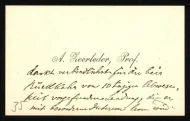 A. Zeerleder, Prof.
dankt verbindlichst für die bei s.
Rückkehr von 10 tägiger Abwesen-
heit vorgefundene Sendung, die er
mit besonderem Interesse